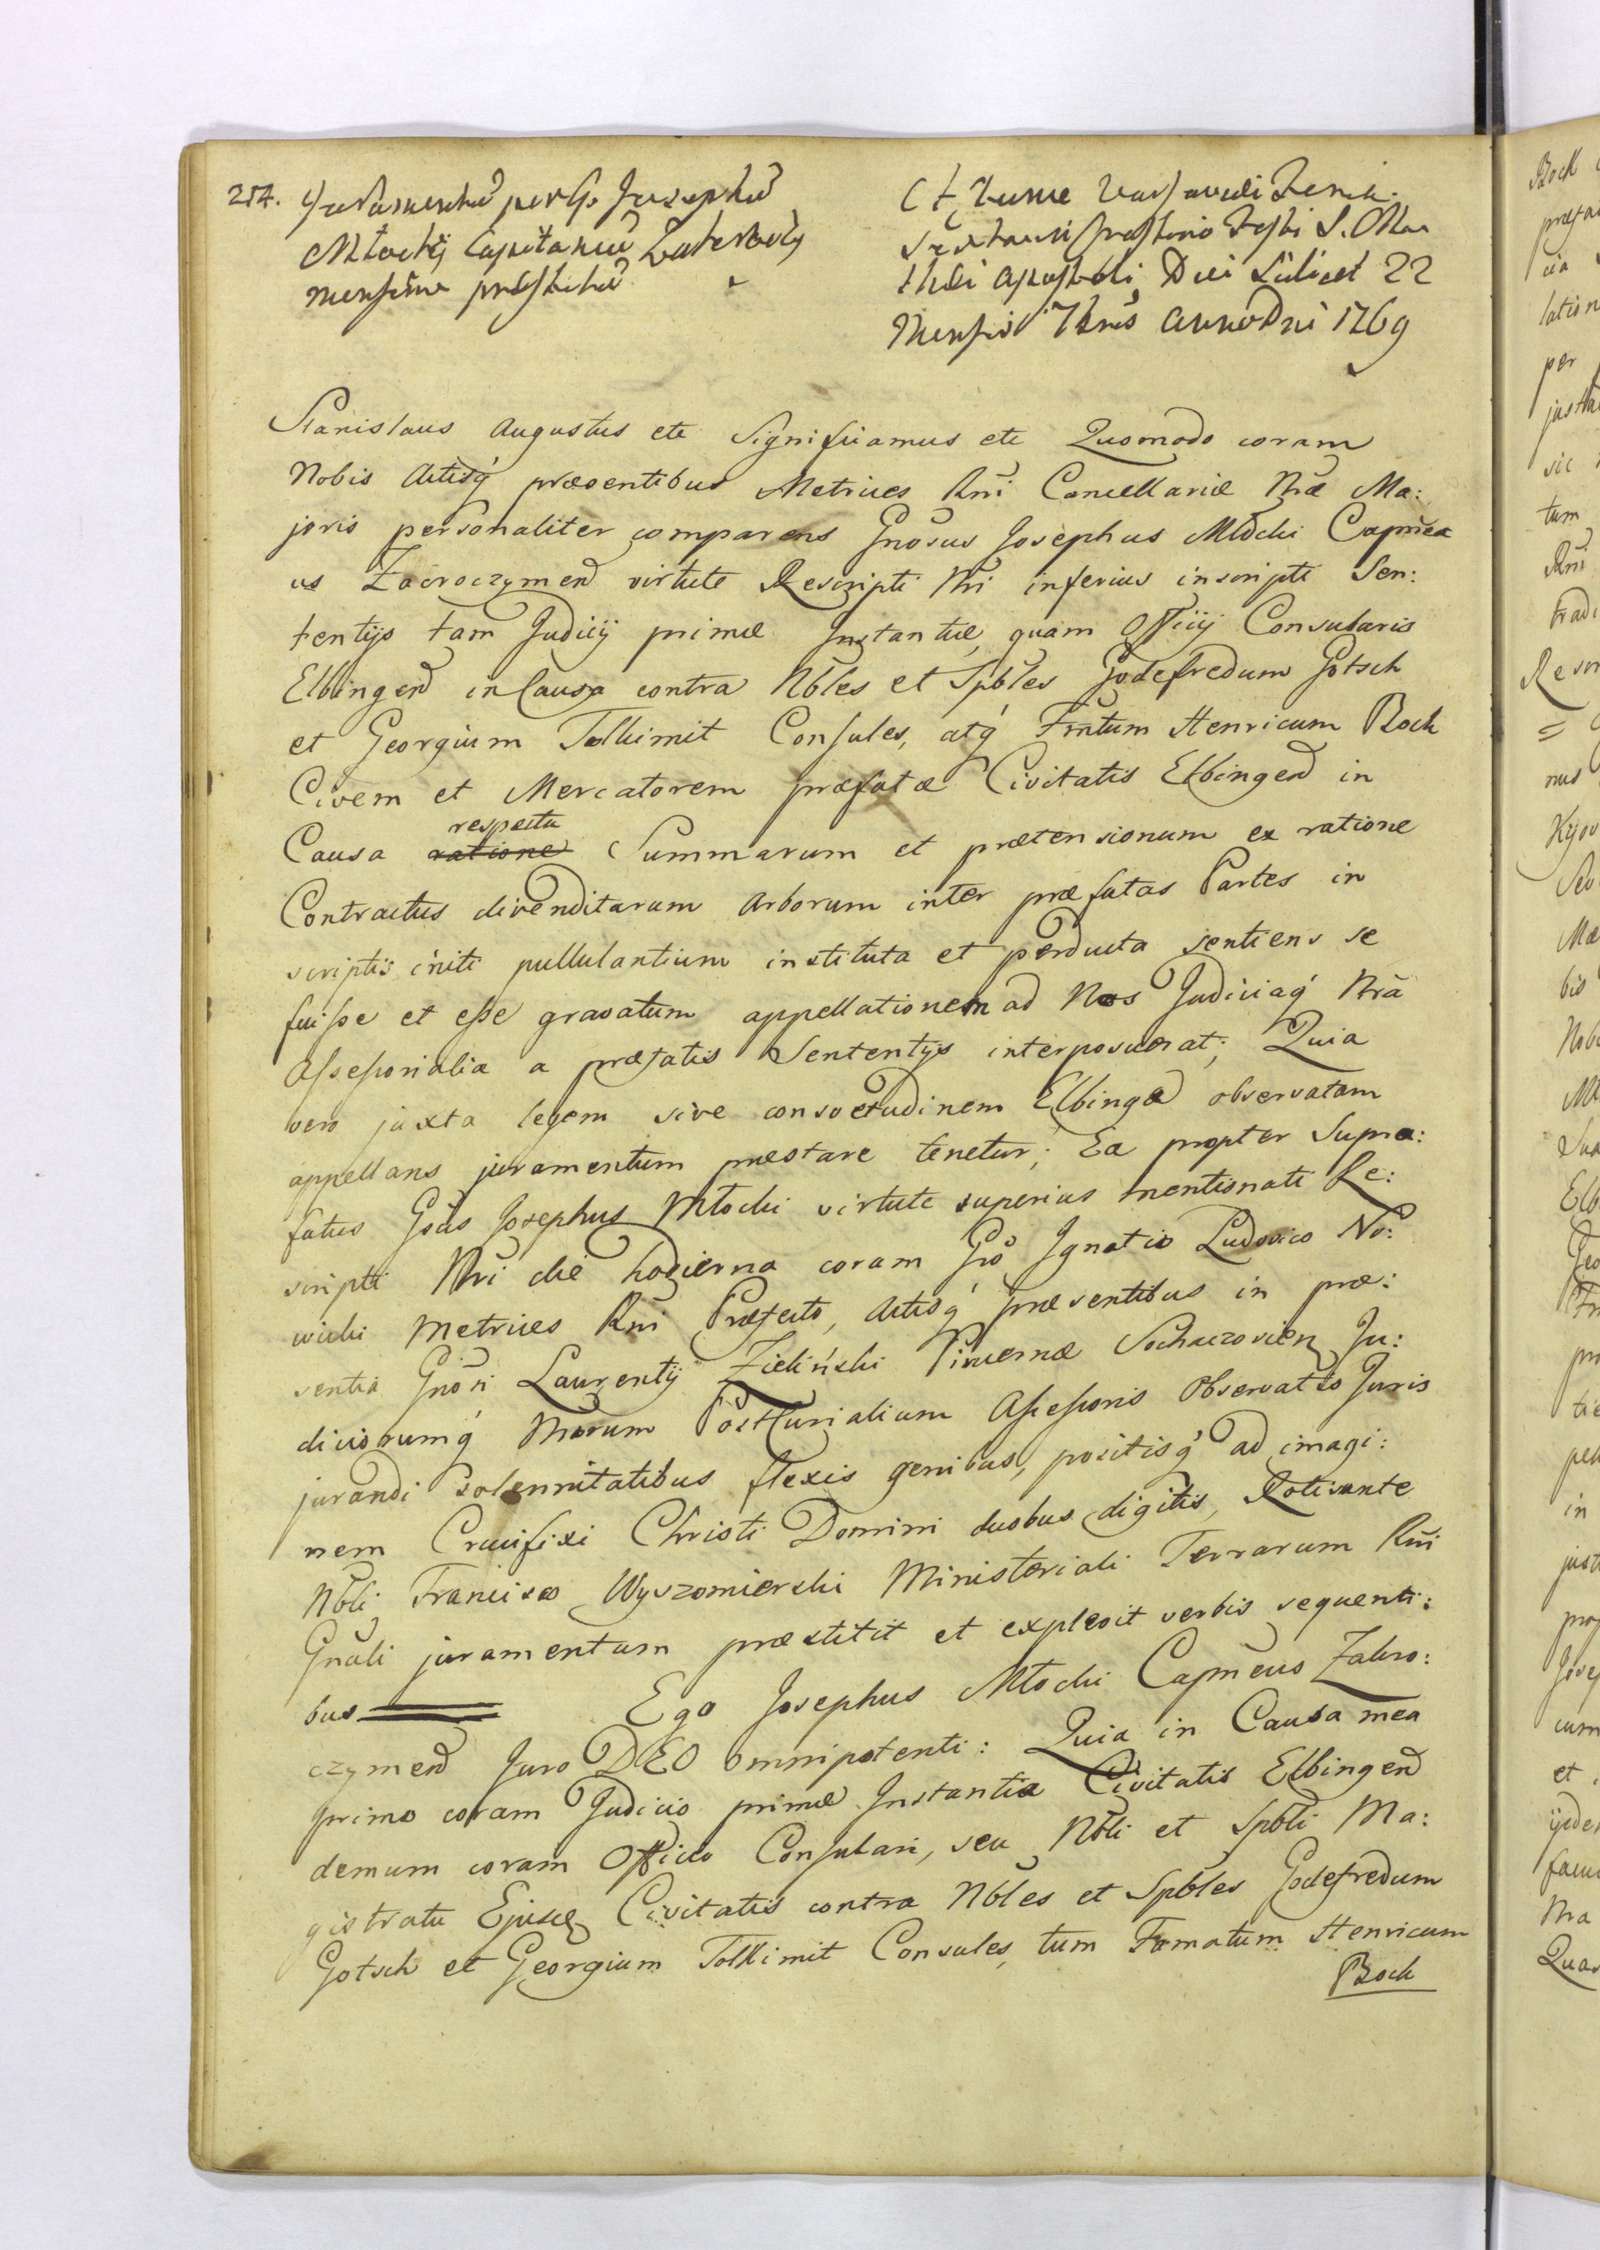 254. Juramentũ per G. Josephũ
Młocki Capitaneũ Zakroczy
mensem præstitũ
Actum Varsaviæ Feria
Sexta in Crastino Festi S. Mat
thæi Apostoli, Die Scilicet 22
Mensis 7bris Anno Dni 1769
Stanislaus Augustus etc Significamus etc Quomodo coram
Nobis Actisq́ præsentibus Metrices Rñi Cancellariæ Nr̃æ Ma:
joris personaliter comparens Gñosus Josephus Młocki Capñea
us Zacroczymen̄ virtute Rescripti Nr̃i inferius inscripti Sen:
tentijs tam Judicij primæ Instantiæ, quam Officij Consularis
Elbingen̄ in Causa contra Nb̃les et Spb̃les Godefredum Gotsch
et Georgium Tolkimit Consules, atq́ Fm̃tum Henricum Bock
Civem et Mercatorem præfatæ Civitatis Elbingen̄ in
respectu
Causa ratione Summarum et prætensionum ex ratione
Contractus divenditarum Arborum inter præfatas Partes in
scriptis initi pullulantium instituta et perducta sentiens se
fuisse et esse gravatum appellationem ad Nos Judiciaq́ Nr̃a
Assessorialia a præfatis Sententijs interposuerat; Quia
vero juxta legem sive consvetudinem Elbingæ observatam
appellans juramentum præstare tenetur; Ea propter Supra:
fatus Gsũs Josephus Młocki virtute superius mentionati Re:
scripti Nr̃i die hodierna coram Gr̃o Ignatio Ludovico No:
wicki Metrices Rñi Præfecto, Actisq́ præsentibus in præ:
sentia Gñosi Laurentij Zieliński Pincernæ Sochaczovien Ju:
diciorumq́ Nrorum PostCurialium Assessoris Observatis Juris
jurandi solennitatibus flexis genibus, positisq́ ad imagi:
nem Crucifixi Christi Domini duobus digitis, Rotisante
Nb̃li Francisco Wyszomierski Ministeriali Terrarum Rñi
Gñali juramentum præstitit et explevit verbis sequenti:
bus Ego Josephus Młocki Capñeus Zakro:
czymen̄ Juro DEO omnipotenti: Quia in Causa mea
primo coram Judicio primæ Instantiæ Civitatis Elbingen̄
demum coram Officio Consulari, seu Nb̃li et Spb̃li Ma:
gistratu Ejusdẽ Civitatis contra Nb̃les et Spb̃les Godefredum
Gotsch et Georgium Tolkimit Consules, tum Famatum Henricum
Bock